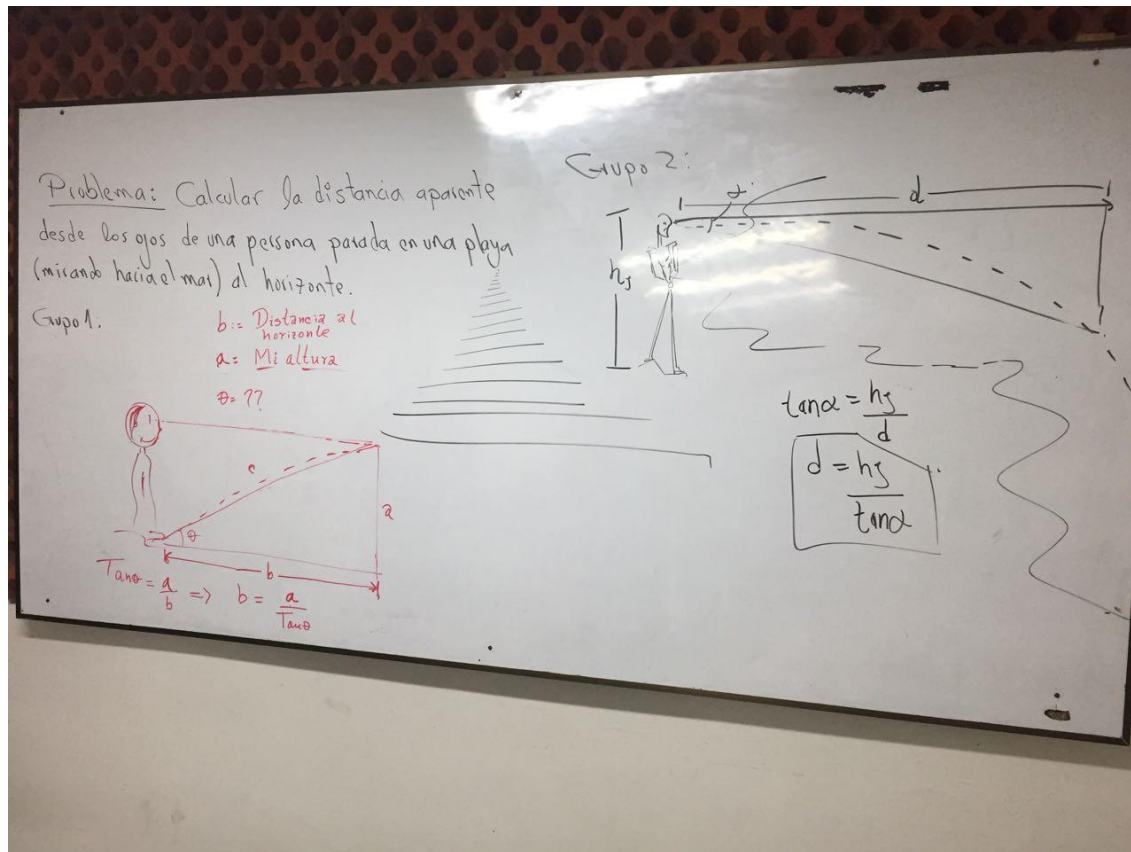 Problema: Calcular la distancia aparente
desde los ojos de una persona parada en una playa
(mirando hacia el mar) al horizonte.
Grupo 1.
b := Distancia al
horizonte
a = Mi altura
θ = ??
c
a
θ
b
Tanθ = a/b => b = a/Tanθ
Grupo 2:
α
d
hj
tanα = hj/d
d = hj/tanα